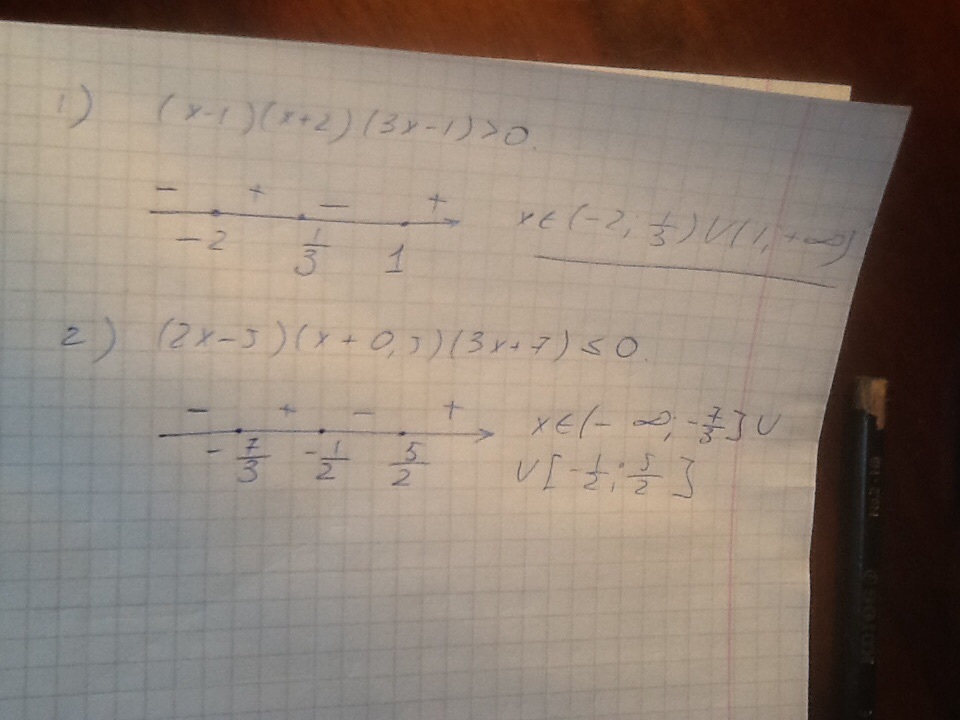 1) (x-1)(x+2)(3x-1)>0.
- + - +
-2 1/3 1
x∈(-2; 1/3)∪(1, +∞)
2) (2x-5)(x+0,5)(3x+7)≤0.
- + - +
-7/3 -1/2 5/2
x∈(-∞; -7/3]∪
∪[-1/2; 5/2]